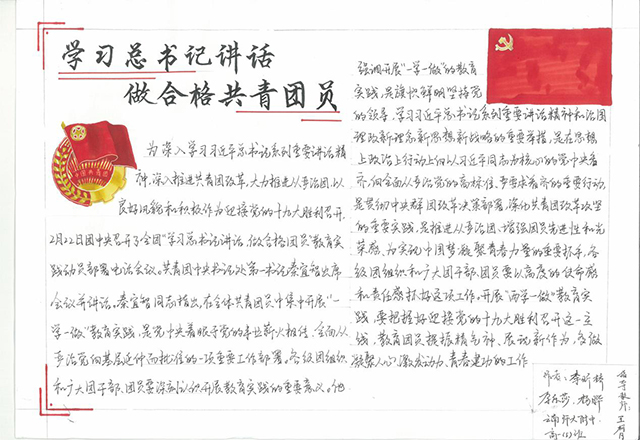 学习总书记讲话
做合格共青团员
为深入学习习近平总书记系列重要讲话精
神,深入推进共青团改革,大力推进从严治团,以
良好风貌和积极作为迎接党的十九大胜利召开,
2月22日团中央召开了全国"学习总书记讲话,做合格团员"教育实
践动员部署电话会议。共青团中央书记处第一书记秦宜智出席
会议并讲话。秦宜智同志指出,在全体共青团员中集中开展"一
学一做"教育实践,是党中央着眼于党的事业薪火相传、全面从
严治党向基层延伸而批准的一项重要工作部署。各级团组织
和广大团干部、团员要深刻认识开展教育实践的重要意义。他
强调开展"一学一做"的教育
实践,是旗帜鲜明坚持党
的领导,学习习近平总书记系列重要讲话精神和治国
理政新理念新思想新战略的重要举措,是在思想
上政治上行动上向以习近平同志为核心的党中央看
齐,向全面从严治党的高标准、严要求看齐的重要行动,
是贯彻中央群团改革决策部署,深化共青团改革攻坚
的重要实践,是推进从严治团、增强团员先进性和光
荣感,为实现中国梦凝聚青春力量的重要抓手。各
级团组织和广大团干部、团员要以高度的使命感
和责任感抓好这项工作。开展"两学一做"教育实
践,要把握好迎接党的十九大胜利召开这一主
线,教育团员振振精气神、展现新作为,各做
凝聚人心、激发动力、青春建功的工作
作者:李昕